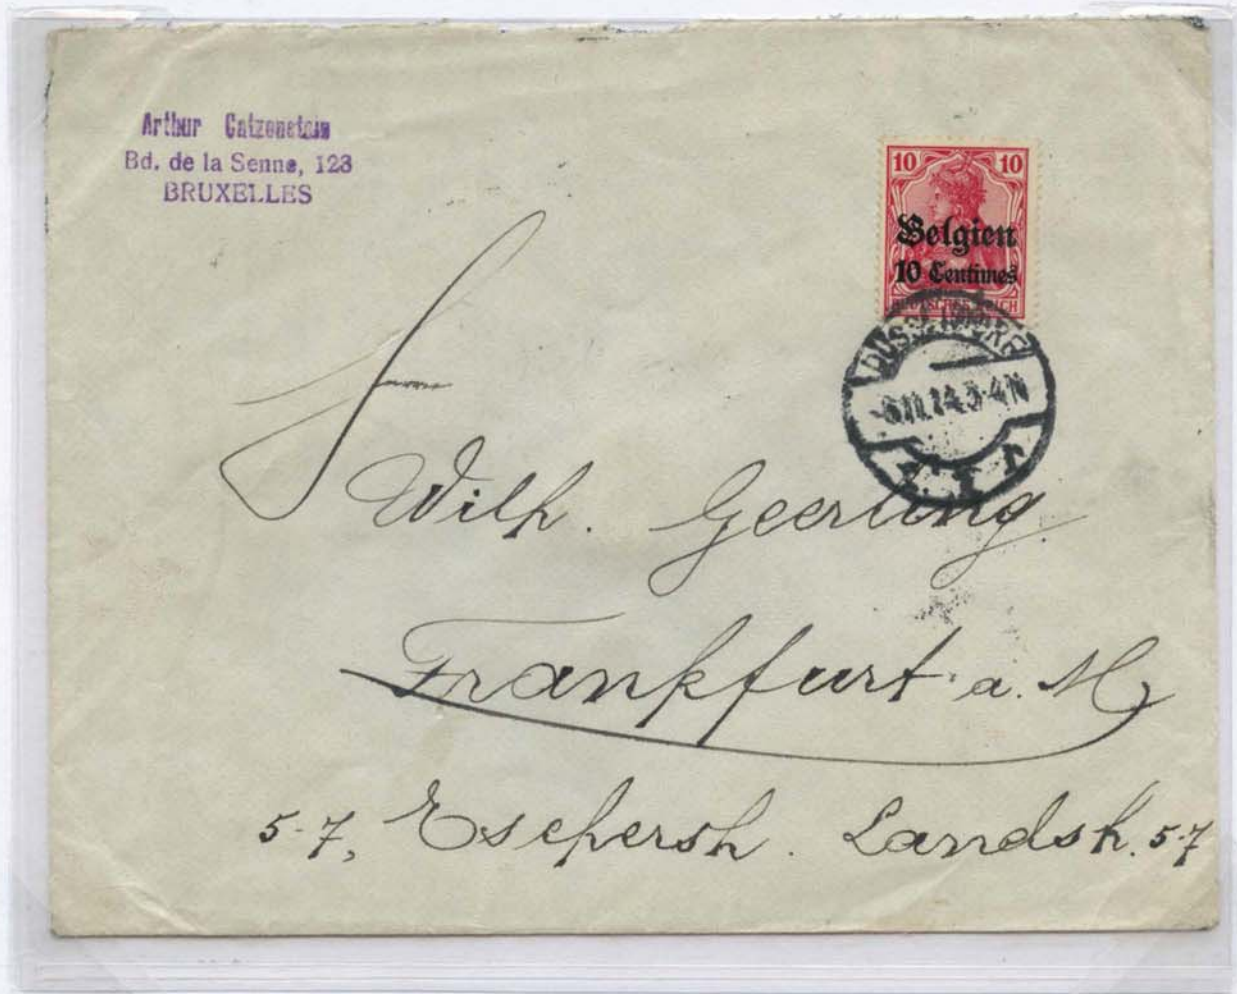 Arthur Catzenstein
Bd. de la Senne, 123
BRUXELLES
10 10
Belgien
10 Centimes
DEUTSCHES REICH
DÜSSELDORF
-8.11.14.3-4N
Wilh. Geerling
Frankfurt a. M
5-7, Eschersh. Landsh. 5-7